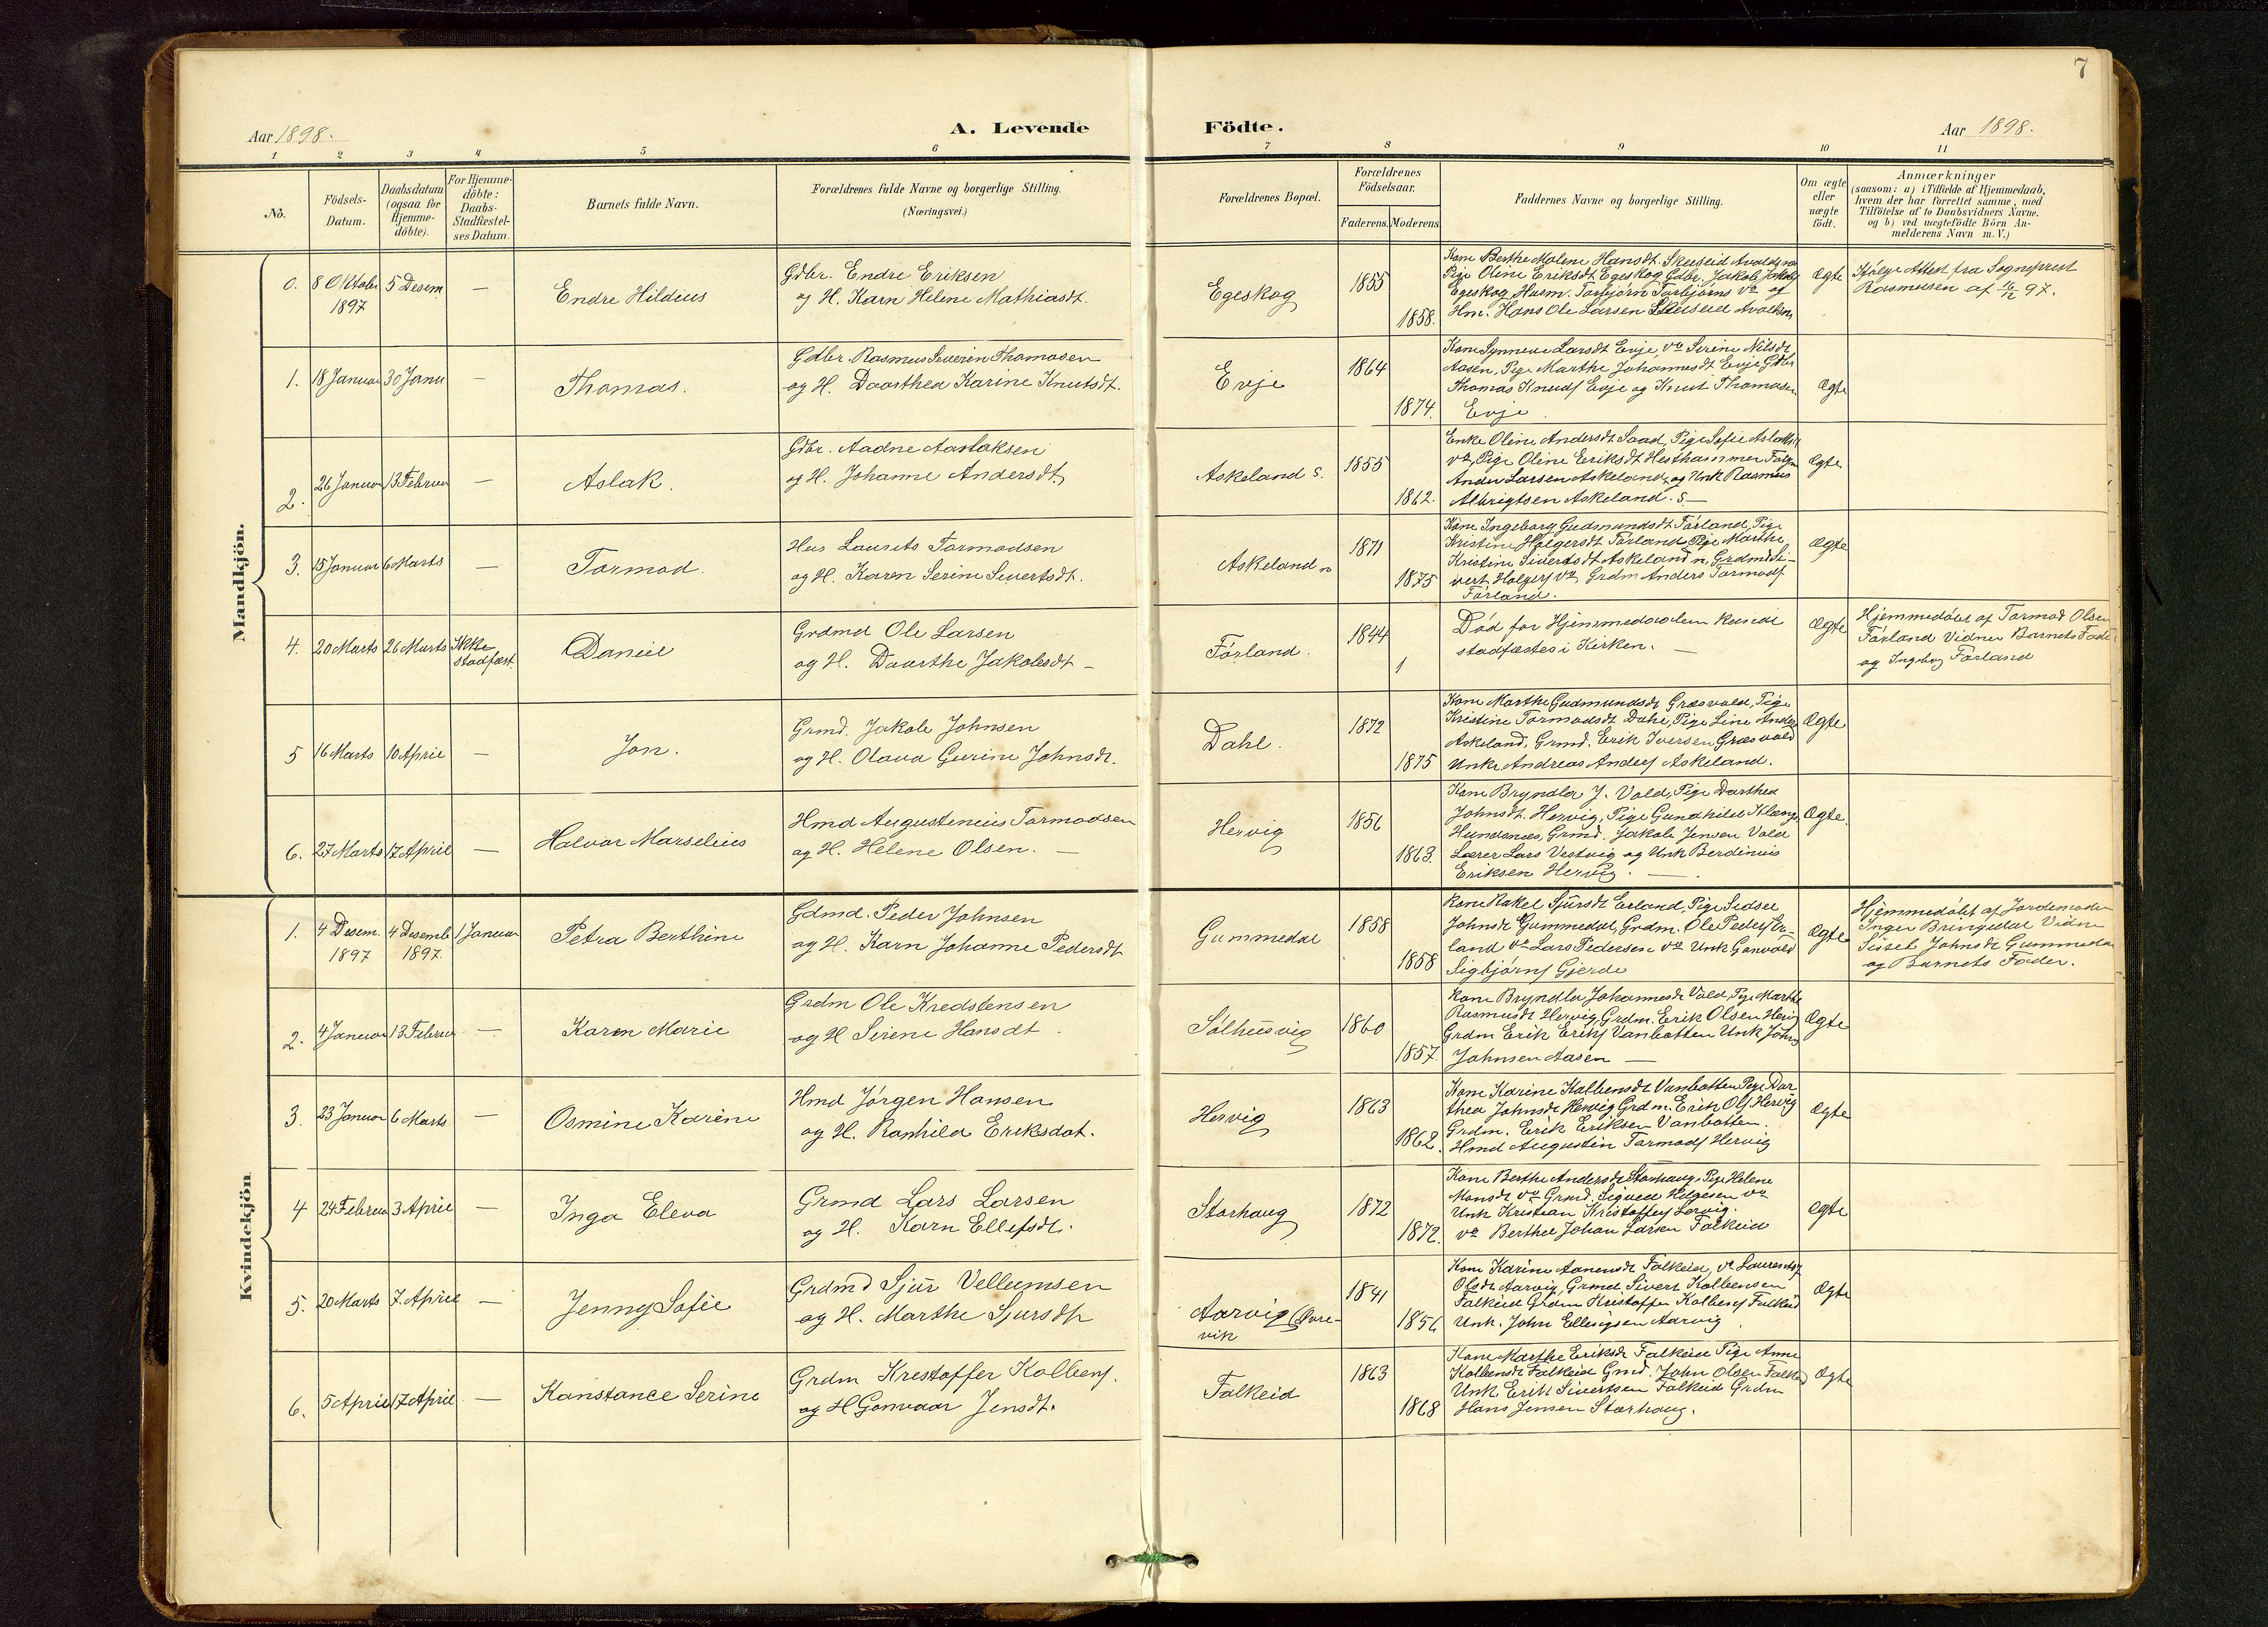 7
Aar 1898.
A. Levende Födte.
Aar 1898.
1 2 3 4 5 6 7 8 9 10 11
No.
Födsels-Datum.
Daabsdatum (ogsaa for Hjemme-döbte).
For Hjemme-döbte: Daabs-Stadfæstel-ses Datum.
Barnets fulde Navn.
Forældrenes fulde Navne og borgerlige Stilling. (Næringsvei.)
Forældrenes Bopæl.
Forældrenes Födselsaar.
Faderens. Moderens
Faddernes Navne og borgerlige Stilling.
Om ægte eller uægte födt.
Anmærkninger
(saasom: a) i Tilfælde af Hjemmedaab,
hvem der har forrettet samme, med
Tilföielse af to Daabsvidners Navne.
og b) ved uægtefödte Börn An-
melderens Navn m. V.)
Mandkjön.
0. 8 Oktober 1897 5 Desem — Endre Hildius
Gdbr. Endre Eriksen
og H. Karn Heline Mathiasdt.
Egeskog 1855 1858.
Kone Berthe Malene Hansdt. Skeiseid Avaldsnes
Pige Oline Eriksdt Egeskog Gdbr. Jakob Jakobs
Egeskog Husm. Torbjörn Torbjörns do og
Hm. Hans Ole Larsen Skeiseid Avaldsn
Ægte
Ifölge Attest fra Sogneprest
Rasmusen af 16/12 97.
1. 18 Januar 30 Janu — Thomas.
Gdbr. Rasmus Severin Thomasen
og H. Daarthea Karine Knutsdt.
Evje 1864 1874.
Kone Synneve Larsdt Evje, do Serine Nilsdt
Aasen, Pige Marthe Johannesdt Evje Gdbr
Thomas Knuds Evje og Knut Thomasen
Evje.
Ægte
2. 26 Januar 13 Februar — Aslak.
Gdbr. Aadne Aaslaksen
og H. Johanne Andersdt.
Askeland s. 1855 1862.
Enke Oline Andersdt Saad, Pige Sofie Aslaksd
do, Pige Oline Eriksdt Hesthammer
Ander Larsen Askeland, og Unk Rasmus
Albrigtsen Askeland. S—
Ægte
3. 15 Januar 6 Marts — Tormod.
Hus Laurits Tormodsen
og H. Karen Serine Sivertsdt.
Askeland n 1871 1875
Kone Ingeborg Gudmundsdt Förland, Pige
Kristine Holgersdt Förland, Pige Marthe
Kristine Sivertsdt Askeland n, Grdmd Si-
vert Holgers do, Grdm Anders Tormods
Förland.
Ægte
4. 20 Marts 26 Marts Ikke stadfæst. Daniel
Grdmd Ole Larsen
og H. Daarthe Jakobsdt —
Förland. 1844 1
Död for Hjemmedaaben kunde
stadfæstes i Kirken. —
Ægte
Hjemmedöbt af Tormod Olsen
Förland Vidner Barnets Fader
og Ingeborg Förland
5 16 Marts 10 April — Jon.
Grmd. Jakob Johnsen
og H. Olava Gurine Johnsdt.
Dahl. 1872 1875
Kone Marthe Gudmundsdt Græsvold, Pige
Kristine Tormodsdt Dahl, Pige Line Anders
Askeland, Grmd. Erik Iversen Græsvold
Unk. Andreas Anders Askeland.
Ægte
6. 27 Marts 17 April — Halvor Marselius
Hmd Augustinius Tormodsen
og H. Helene Olsen. —
Hervig 1856 1863.
Kone Bryndla J. Vold, Pige Darthea
Johnsdt. Hervig, Pige Gundhild
Hundsnes, Grmd. Jakob Jensen Vold
Lærer Lars Vestvig og Unk Berdinius
Eriksen Hervig. —
Ægte.
Kvindekjön
1. 4 Desem. 1897 4 Desemb 1897. 1 Januar Petra Berthine
Gdmd. Peder Johnsen
og H. Karn Johanne Pedersdt
Gummedal 1858 1858
Kone Rakel Sjursdt Erland, Pige Sidsel
Johnsdt Gummedal, Grdm. Ole Peders Er-
land do Lars Pedersen do Unk Gonvald
Sigbjörns Gjerde
Ægte
Hjemmedöbt af Jordemoder
Inger Bringedal Vidne
Sissel Johnsdt Gummedal
og Barnets Fader.
2. 4 Januar 13 Februar — Karen Marie
Grdm Ole Kredstensen
og H Sirene Hansdt.
Sölhusvig 1860 1857.
Kone Bryndla Johannesdt Vold, Pige Marthe
Rasmusdt Hervig, Grdm. Erik Olsen Hervig
Grdm Erik Eriks Vanbotten Unk John
Johnsen Aasen —
Ægte
3. 23 Januar 6 Marts — Osmine Karine
Hmd Jörgen Hansen
og H. Ranhild Eriksdat.
Hervig 1863 1862.
Kone Karine Kolbensdt Vanbotten Pige Dar
thea Johnsdt Hervig Grdm. Erik Ols Hervig
Grdm. Erik Eriksen Vanbotten.
Hmd Augustin Tormods Hervig
Ægte
4 24 Februar 3 April — Inga Eleva
Grmd Lars Larsen
og H. Karn Ellefsdt.
Storhaug 1872 1872.
Kone Berthe Andersdt Storhaug, Pige Helene
Monsdt do Grmd. Sigved Helgesen do
Unk Kristian Kristoffers Lervig.
do Berthel Johan Larsen Falkeid
Ægte
5. 20 Marts 7. April — Jenny Sofie
Grdmd Sjur Vellumsen
og H. Marthe Sjursdt
Aarvig (Övre-
vik 1841 1856
Kone Karine Aanensdt Falkeid, do Laurentse
Olsdt Aarvig, Grmd. Sivert Kolbensen
Falkeid Grdm Kristoffer Kolbens Falkeid
Unk. John Ellingsen Aarvig
Ægte
6. 5 April 17 April — Konstance Serine
Grdm Krestoffer Kolbens.
og H Gonvaar Jensdt.
Falkeid 1863 1868
Kone Marthe Eriksdt Falkeid Pige Anne
Kolbensdt Falkeid Gmd. John Olsen Falkeid
Unk Erik Sivertsen Falkeid Grdm
Hans Jensen Storhaug.
Ægte